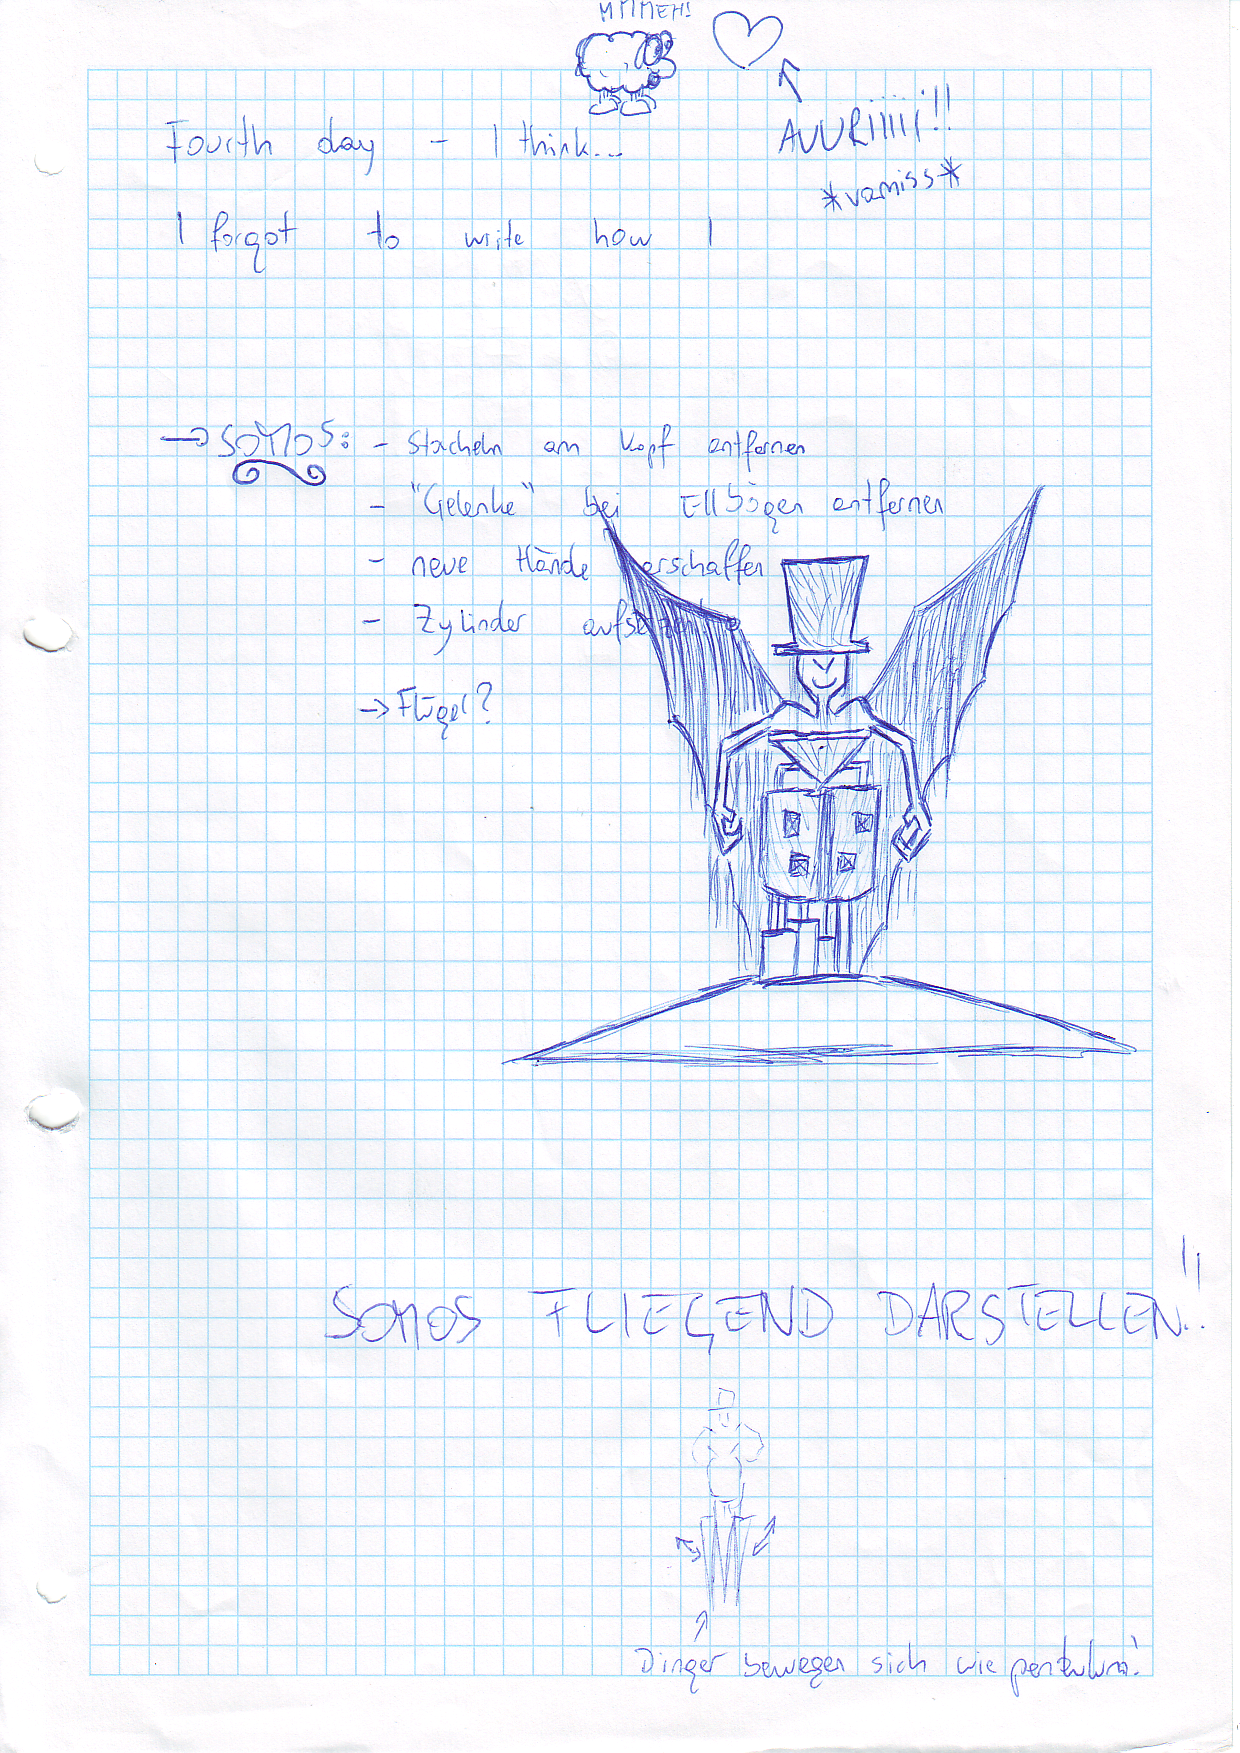 MMMEH!
Fourth day – I think...
AUURiiiii!!
*vamiss*
I forgot to write how I
→ SOMOS: - Stacheln am Kopf entfernen
- "Gelenke" bei Ellbögen entfernen
- neue Hände verschaffen
- Zylinder aufsetzen
→ Flügel?
SOMOS FLIEGEND DARSTELLEN!!
Dinger bewegen sich wie